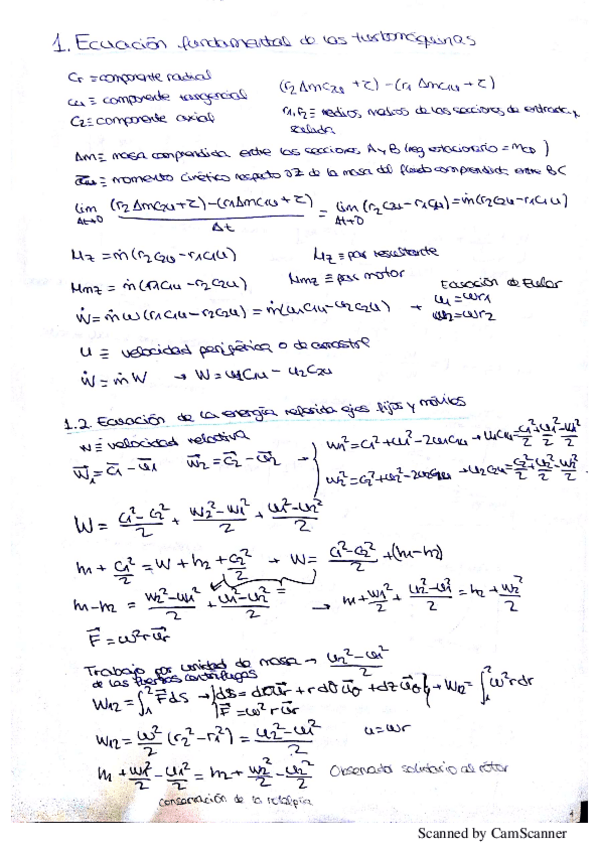 1. Ecuación fundamental de las turbomáquinas
Cr ≡ componente radial
Cu ≡ componente tangencial (r2 Δm c2u + τ) − (r1 Δm c1u + τ)
Cz ≡ componente axial r1, r2 ≡ radios medios de las secciones de entrada y
salida
Δm ≡ masa comprendida entre las secciones A y B (reg estacionario = mCD)
≡ momento cinético respecto OZ de la masa del fluido comprendida entre BC
lim Δt→0 ((r2 Δm c2u + τ) − (r1 Δm c1u + τ)) / Δt = lim Δt→0 (r2 c2u − r1 c1u) = ṁ(r2 c2u − r1 c1u)
Mz = ṁ(r2 c2u − r1 c1u) Mz ≡ par resultante
Mmz = ṁ(r1 c1u − r2 c2u) Mmz ≡ par motor Ecuación de Euler
Ẇ = ṁ ω(r1 c1u − r2 c2u) = ṁ(u1 c1u − u2 c2u) + u1 = ωr1
u2 = ωr2
u ≡ velocidad periférica o de arrastre
Ẇ = ṁ W → W = u1 c1u − u2 c2u
1.2. Ecuación de la energía referida ejes fijos y móviles
w ≡ velocidad relativa
w⃗1 = c⃗1 − u⃗1 w⃗2 = c⃗2 − u⃗2 → { w1² = c1² + u1² − 2u1c1u → u1c1u = c1²/2 + u1²/2 − w1²/2
w2² = c2² + u2² − 2u2c2u → u2c2u = c2²/2 + u2²/2 − w2²/2
W = (c1² − c2²)/2 + (w2² − w1²)/2 + (u1² − u2²)/2
h1 + c1²/2 = W + h2 + c2²/2 → W = (c1² − c2²)/2 + (h1 − h2)
h1 − h2 = (w2² − w1²)/2 + (u1² − u2²)/2 = → h1 + w1²/2 + (u2² − u1²)/2 = h2 + w2²/2
F⃗ = ω² r u⃗r
Trabajo por unidad de masa → (u2² − u1²)/2
de las fuerzas centrífugas
W12 = ∫₁² F⃗ ds → { ds = dr u⃗r + r dθ u⃗θ + dz u⃗θ } → W12 = ∫₁² ω² r dr
F⃗ = ω² r u⃗r
W12 = ω²/2 (r2² − r1²) = (u2² − u1²)/2 u = ωr
h1 + w1²/2 − u1²/2 = h2 + w2²/2 − u2²/2 Observador solidario al rotor
conservación de la rotalpía
1
Scanned by CamScanner